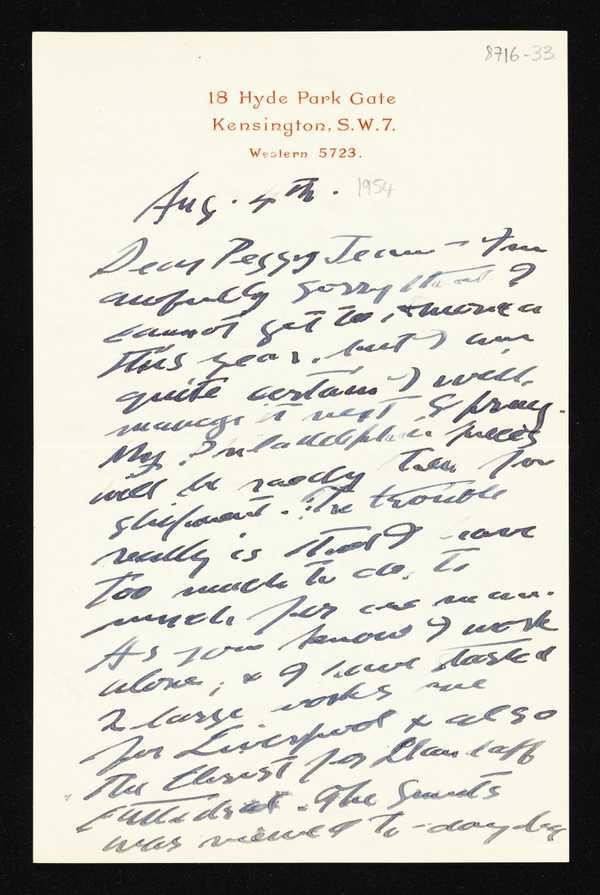 8716-33
18 Hyde Park Gate
Kensington, S.W.7.
Western 5723.
Aug. 4th. 1954
Dear Peggy Jean - I'm
awfully sorry that I
cannot get to America
this year. but I am
quite certain I will
manage it next Spring.
My Philadelphia pieces
will be ready then for
shipment. The trouble
really is that I have
too much to do. to
much for one man.
As you know I work
alone, & I have tasked
2 large works
for Liverpool & also
the Christ for Llandaff
Cathedral. The Smuts
was viewed to-day by